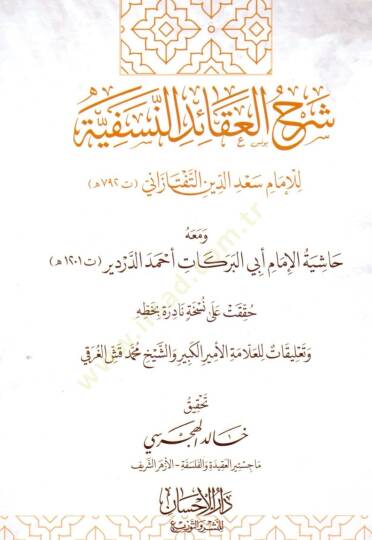 شرح العقائد النسفية
للإمام سعد الدين التفتازاني (ت ٧٩٢هـ)
ومعه
حاشية الإمام أبي البركات أحمد الدردير (ت ١٢٠١هـ)
حققت على نسخة نادرة بخطه
وتعليقات للعلامة الأمير الكبير والشيخ محمد قش الغرقي
تحقيق
خالد الهجرسي
ماجستير العقيدة والفلسفة - الأزهر الشريف
دار الإحسان
للنشر والتوزيع